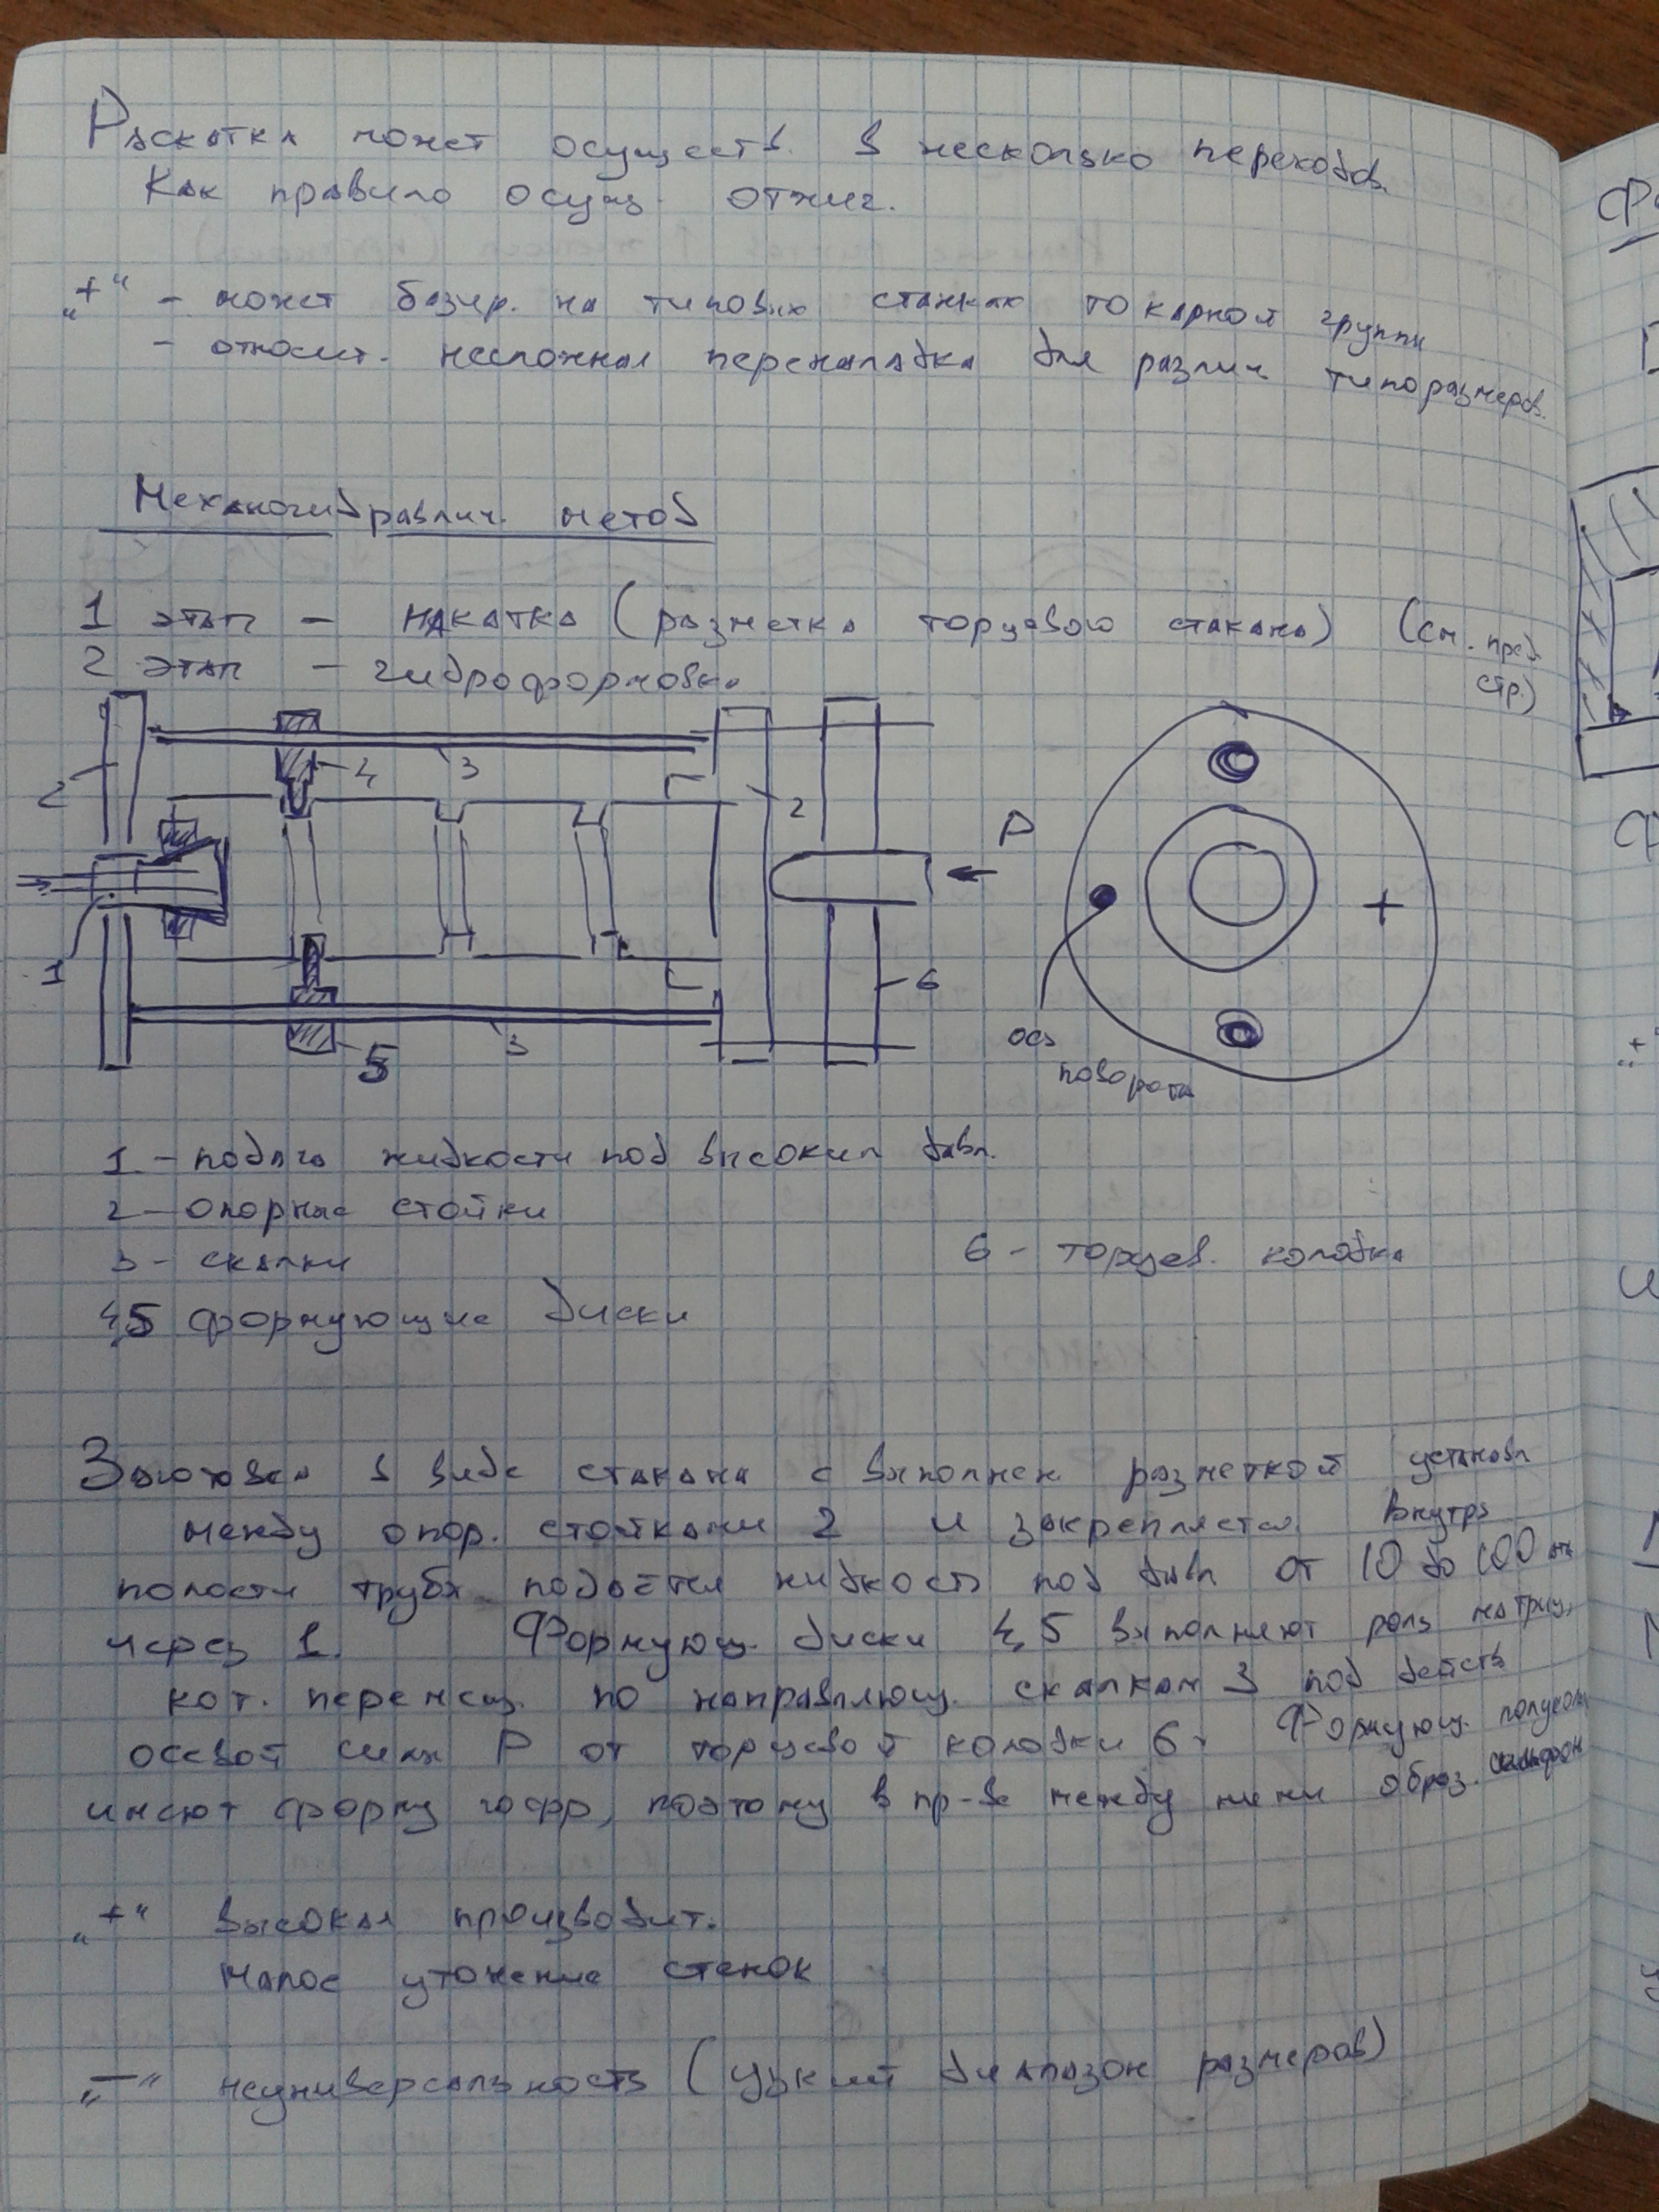 Раскатка может осуществ. в несколько переходов.
Как правило осущ. отжиг.
„+“ – может базир. на типовых станках токарной группы
– относит. несложная переналадка для различ типоразмеров.
Механогидравлич. метод
1 этап – накатка (разметка торцевого стакана) (см. пред. стр.)
2 этап – гидроформовка
2
4
3
2
P
1
5
3
6
ось
поворота
1 – подача жидкости под высоким давл.
2 – опорные стойки
3 – скалки
6 – торцев. колодка
4,5 формующие диски
Заготовка в виде стакана с выполнен разметкой установл
между опор. стойками 2 и закрепляется. Внутрь
полости трубы подаётся жидкость под давл от 10 до 100 атм
через 1. Формующ. диски 4,5 выполняют роль матриц,
кот. перемещ. по направляющ. скалкам 3 под действ
осевой силы P от торцевой колодки 6. Формующ. полукольц
имеют форму гофр, поэтому в пр-ве между ними образ. сильфон
„+“ высокая производит.
малое утонение стенок
„–“ неуниверсальность (узкий диапазон размеров)